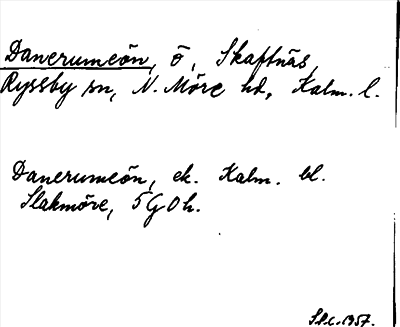 Danerumeön, ö, Skaftnäs,
Ryssby sn, N. Möre hd, Kalm. l.
Danerumeön, ek. Kalm. bl.
Slakmöre, 5G0h.
S.P.C. 1957.